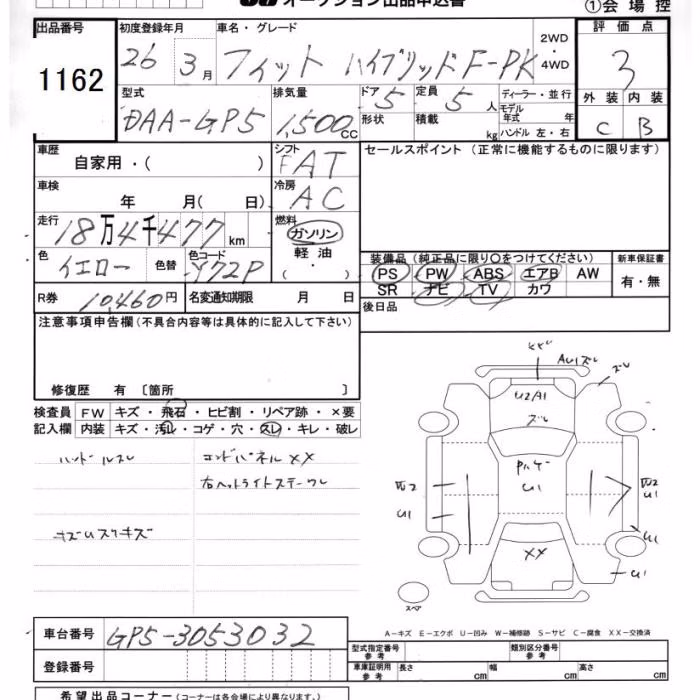 オークション出品申込書
①会場控
出品番号
1162
初度登録年月
26 3月
車名・グレード
フィット ハイブリッド F-PK
2WD
・
4WD
評価点
3
外装 内装
C B
型式
DAA-GP5
排気量
1,500cc
ドア 5
定員 5人
形状
積載 kg
ディーラー・並行
モデル年式 年
ハンドル 左・右
車歴
自家用・( )
シフト
FAT
セールスポイント(正常に機能するものに限ります)
車検
年 月( 日)
冷房
AC
走行
18万4千477km
燃料
ガソリン
軽油
( ・ )
色
イエロー
色替
色コード
Y72P
装備品(純正品に限り○をつけてください)
新車保証書
PS PW ABS エアB AW
SR ナビ TV カワ
有・無
R券 10,460円
名変通知期限 月 日
後日品
注意事項申告欄(不具合内容等は具体的に記入して下さい)
修復歴 有 〔箇所 〕
検査員
記入欄
FW キズ・飛石・ヒビ割・リペア跡・×要
内装 キズ・汚レ・コゲ・穴・スレ・キレ・破レ
ハンドルスレ
コンドパネルXX
右ヘットライトステーワレ
キズUスリキズ
XX
AU1ズレ
ズレ
U2A1
ズレ
U1
U1
U1
U1
U1
XX
スペア
A-キズ E-エクボ U-凹み W-補修跡 S-サビ C-腐食 XX-交換済
車台番号 GP5-3053032
登録番号
型式指定番号
参考
類別区分番号
参考
車庫証明用
参考
長さ cm 幅 cm 高さ cm
希望出品コーナー(コーナーは各会場により異なります。)